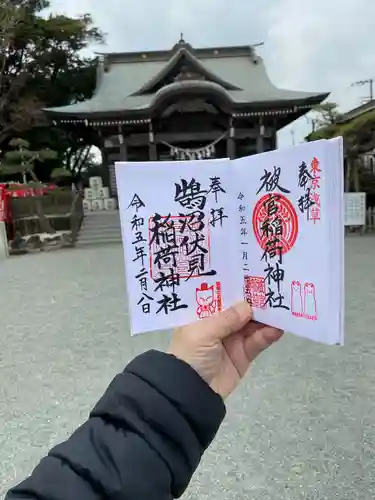 東京浅草
奉拝
被官稲荷神社
令和五年一月二十五日
奉拝
鵠沼伏見
稲荷神社
令和五年二月八日